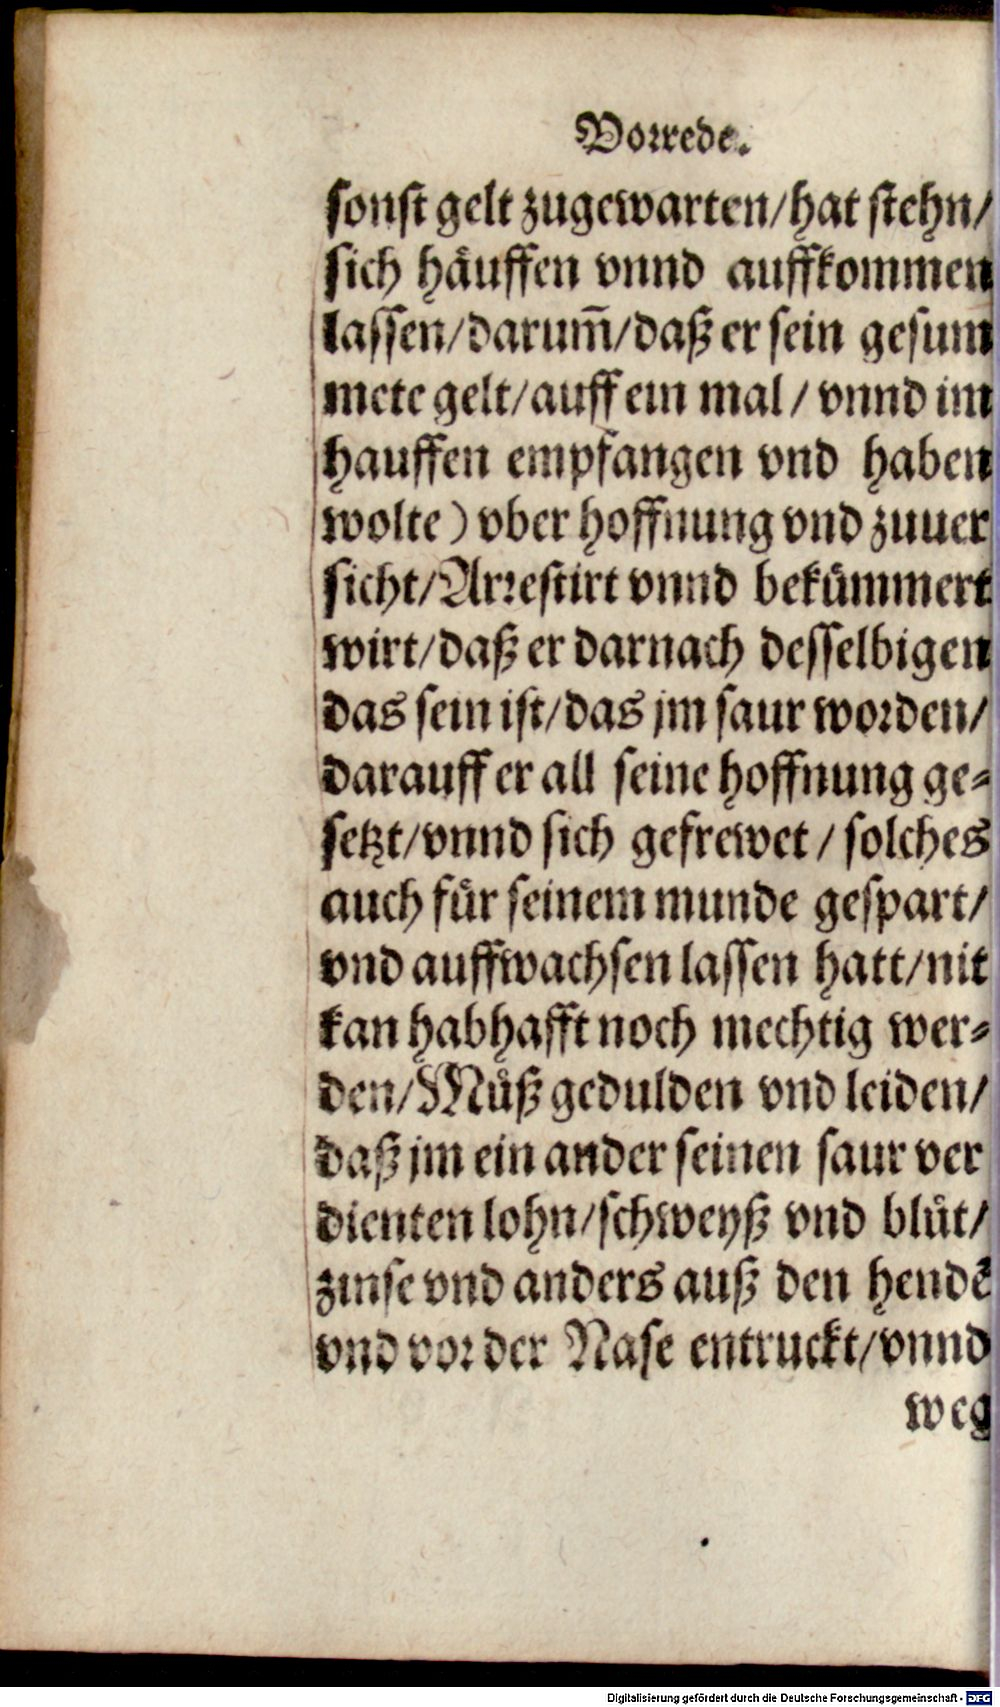 Vorrede.
sonst gelt zugewarten/hat stehn/
sich häuffen vnnd auffkommen
lassen/darum̃/daß er sein gesum
mete gelt/auff ein mal/ vnnd im
hauffen empfangen vnd haben
wolte) vber hoffnung vnd zuuer
sicht/Arrestirt vnnd bekümmert
wirt/daß er darnach desselbigen
das sein ist/das jm saur worden/
darauff er all seine hoffnung ge-
setzt/vnnd sich gefrewet/ solches
auch für seinem munde gespart/
vnd auffwachsen lassen hatt/nit
kan habhafft noch mechtig wer-
den/Müß gedulden vnd leiden/
daß jm ein ander seinen saur ver
dienten lohn/schweyß vnd blüt/
zinse vnd anders auß den hendẽ
vnd vor der Nase entruckt/vnnd
weg
Digitalisierung gefördert durch die Deutsche Forschungsgemeinschaft - DFG